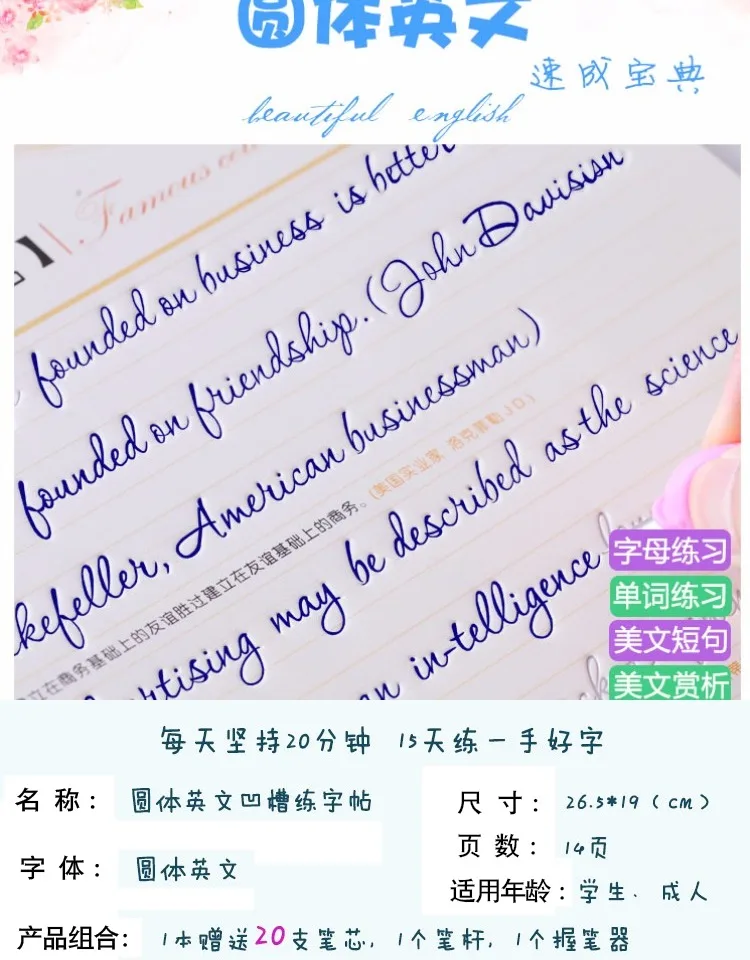 圆体英文
速成宝典
beautiful english
Famous
founded on business is better
founded on friendship.(John Davisisn
kefeller, American businessman)
立在商务基础上的友谊胜过建立在友谊基础上的商务。(美国实业家 洛克菲勒 J D)
rtising may be described as the science
in-telligence
字母练习
单词练习
美文短句
美文赏析
每天坚持20分钟 15天练一手好字
名 称： 圆体英文凹槽练字帖
尺 寸： 26.5*19（cm）
页 数： 14页
字 体： 圆体英文
适用年龄：学生、成人
产品组合： 1本赠送20支笔芯，1个笔杆，1个握笔器